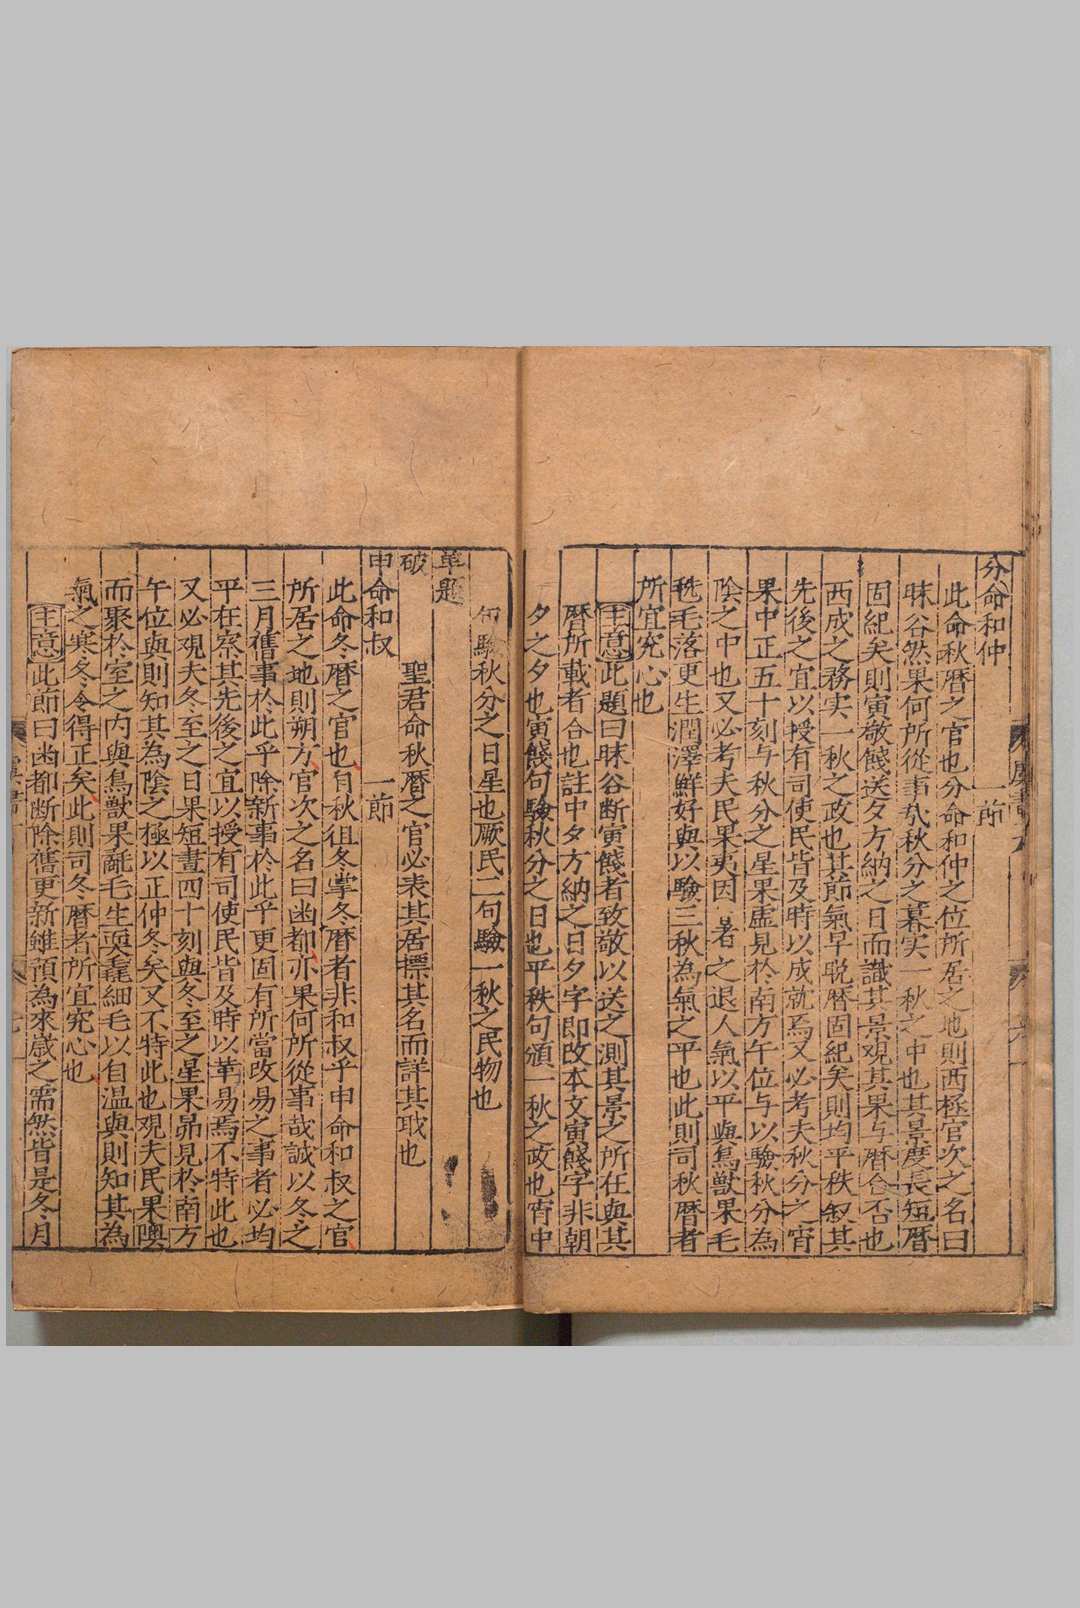 分命和仲 一節
此命秋曆之官也分命和仲之位所居之地則西極官次之名曰
昧谷然果何所從事㢤秋分之暮实一秋之中也其景度長短曆
固紀矣則寅敬餞送夕方納之日而識其景观其果与曆合否也
西成之務实一秋之政也其節氣早晚曆固紀矣則均平秩叙其
先後之宜以授有司使民皆及時以成就焉又必考夫秋分之宵
果中正五十刻与秋分之星果虛見於南方午位与以驗秋分為
陰之中也又必考夫民果夷因暑之退人氣以平與鳥獸果毛
毨毛落更生潤澤鮮好與以驗三秋為氣之平也此則司秋曆者
所宜究心也
主意此題曰昧谷断寅餞者致敬以送之測其景之所在與其
曆所載者合也註中夕方納之日夕字即改本文寅餞字非朝
夕之夕也寅餞句驗秋分之日也平秩句頒一秋之政也宵中
句驗秋分之日星也厥民二句驗一秋之民物也
單題
破 聖君命秋曆之官必表其居標其名而詳其職也
申命和叔 一節
此命冬曆之官也自秋徂冬掌冬曆者非和叔乎申命和叔之官
所居之地則朔方官次之名曰幽都亦果何所從事㢤誠以冬之
三月舊事於此乎除新事於此乎更固有所當改易之事者必均
平在察其先後之宜以授有司使民皆及時以革易焉不特此也
又必观夫冬至之日果短晝四十刻與冬至之星果昴見於南方
午位與則知其為陰之極以正仲冬矣又不特此也观夫民果隩
而聚於室之内與鳥獸果氄毛生耎毳細毛以自温與則知其為
氣之寒冬冬令得正矣此則司冬曆者所宜究心也
主意此節曰幽都断除舊更新雖預為來歲之需然皆是冬月